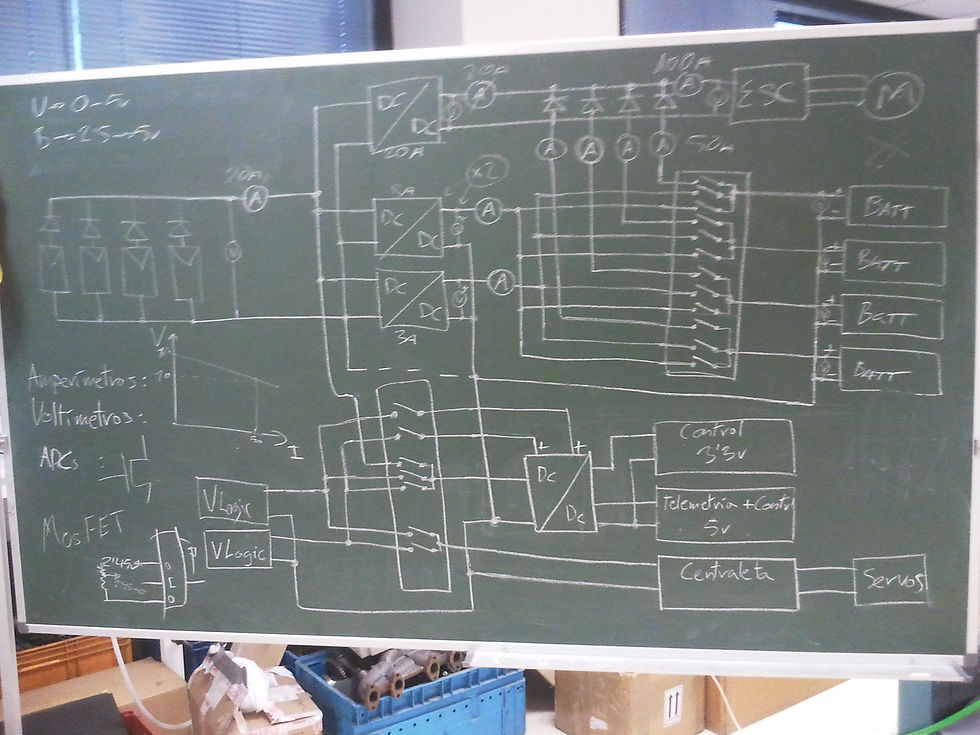 U → 0-5v
B → 2'5 → 5v
20A
A
V
DC
DC
20A
20A
A
V
100A
A
V
ESC
M
A
A
A
A
50A
3A
x2
DC
DC
V
A
DC
DC
V
A
3A
BATT
BATT
BATT
BATT
V
I
Amperímetros:
Voltímetros:
ADCs :
MOSFET
VLogic
VLogic
+
+
DC
DC
Control
3'3v
Telemetría + Control
5v
Centraleta
Servos